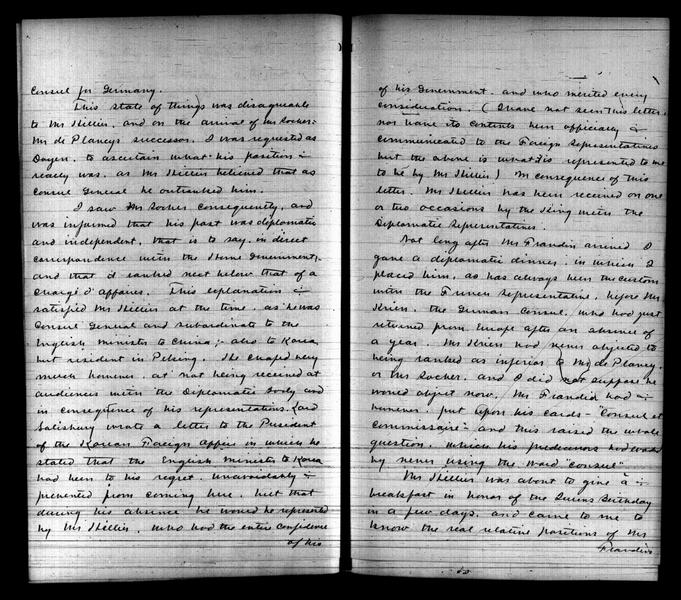 Consul for Germany.
This state of things was disagreeable
to Mr Hillier, and on the arrival of Mr Rocher,
Mr de Plancy's successor. I was requested as
Doyen, to ascertain what his position
really was, as Mr Hillier believed that as
Consul General he outranked him.
I saw Mr Rocher consequently, and
was informed that his post was diplomatic
and independent, that is to say, in direct
correspondence with the Home Government,
and that it ranked next below that of a
Chargé d'affaires. This explanation
satisfied Mr Hillier at the time, as he was
Consul General and subordinate to the
English minister to China, also to Korea
but resident in Peking. He chafed very
much however, at not being received at
audiences with the Diplomatic body and
in consequence of his representations, Lord
Salisbury wrote a letter to the President
of the Korean Foreign Office in which he
stated that the English minister to Korea
had been to his regret, unavoidably
prevented from coming here, but that
during his absence, he would be represented
by Mr Hillier, who had the entire confidence
of his
of his Government, and who merited every
consideration. (I have not seen this letter,
nor have its contents been officially
communicated to the Foreign Representatives
but the above is what is represented to me
to be by Mr Hillier) In consequence of this
letter, Mr Hillier has been received on one
or two occasions by the King with the
Diplomatic Representatives.
Not long after Mr Frandin arrived I
gave a diplomatic dinner, in which I
placed him, as has always been the custom
with the French Representative, before Mr
Krien, the German Consul, who had just
returned from Europe after an absence of
a year. Mr Krien had never objected to
being ranked as inferior to Mr de Plancy,
or Mr Rocher, and I did not suppose he
would object now. Mr Frandin had
however, put upon his cards "Consul et
Commissaire" and this raised the whole
question, which his predecessors had
by never using the word "Consul"
Mr Hillier was about to give a
breakfast in honor of the Queens Birthday
in a few days, and came to me to
know the real relative positions of Mr
Frandin